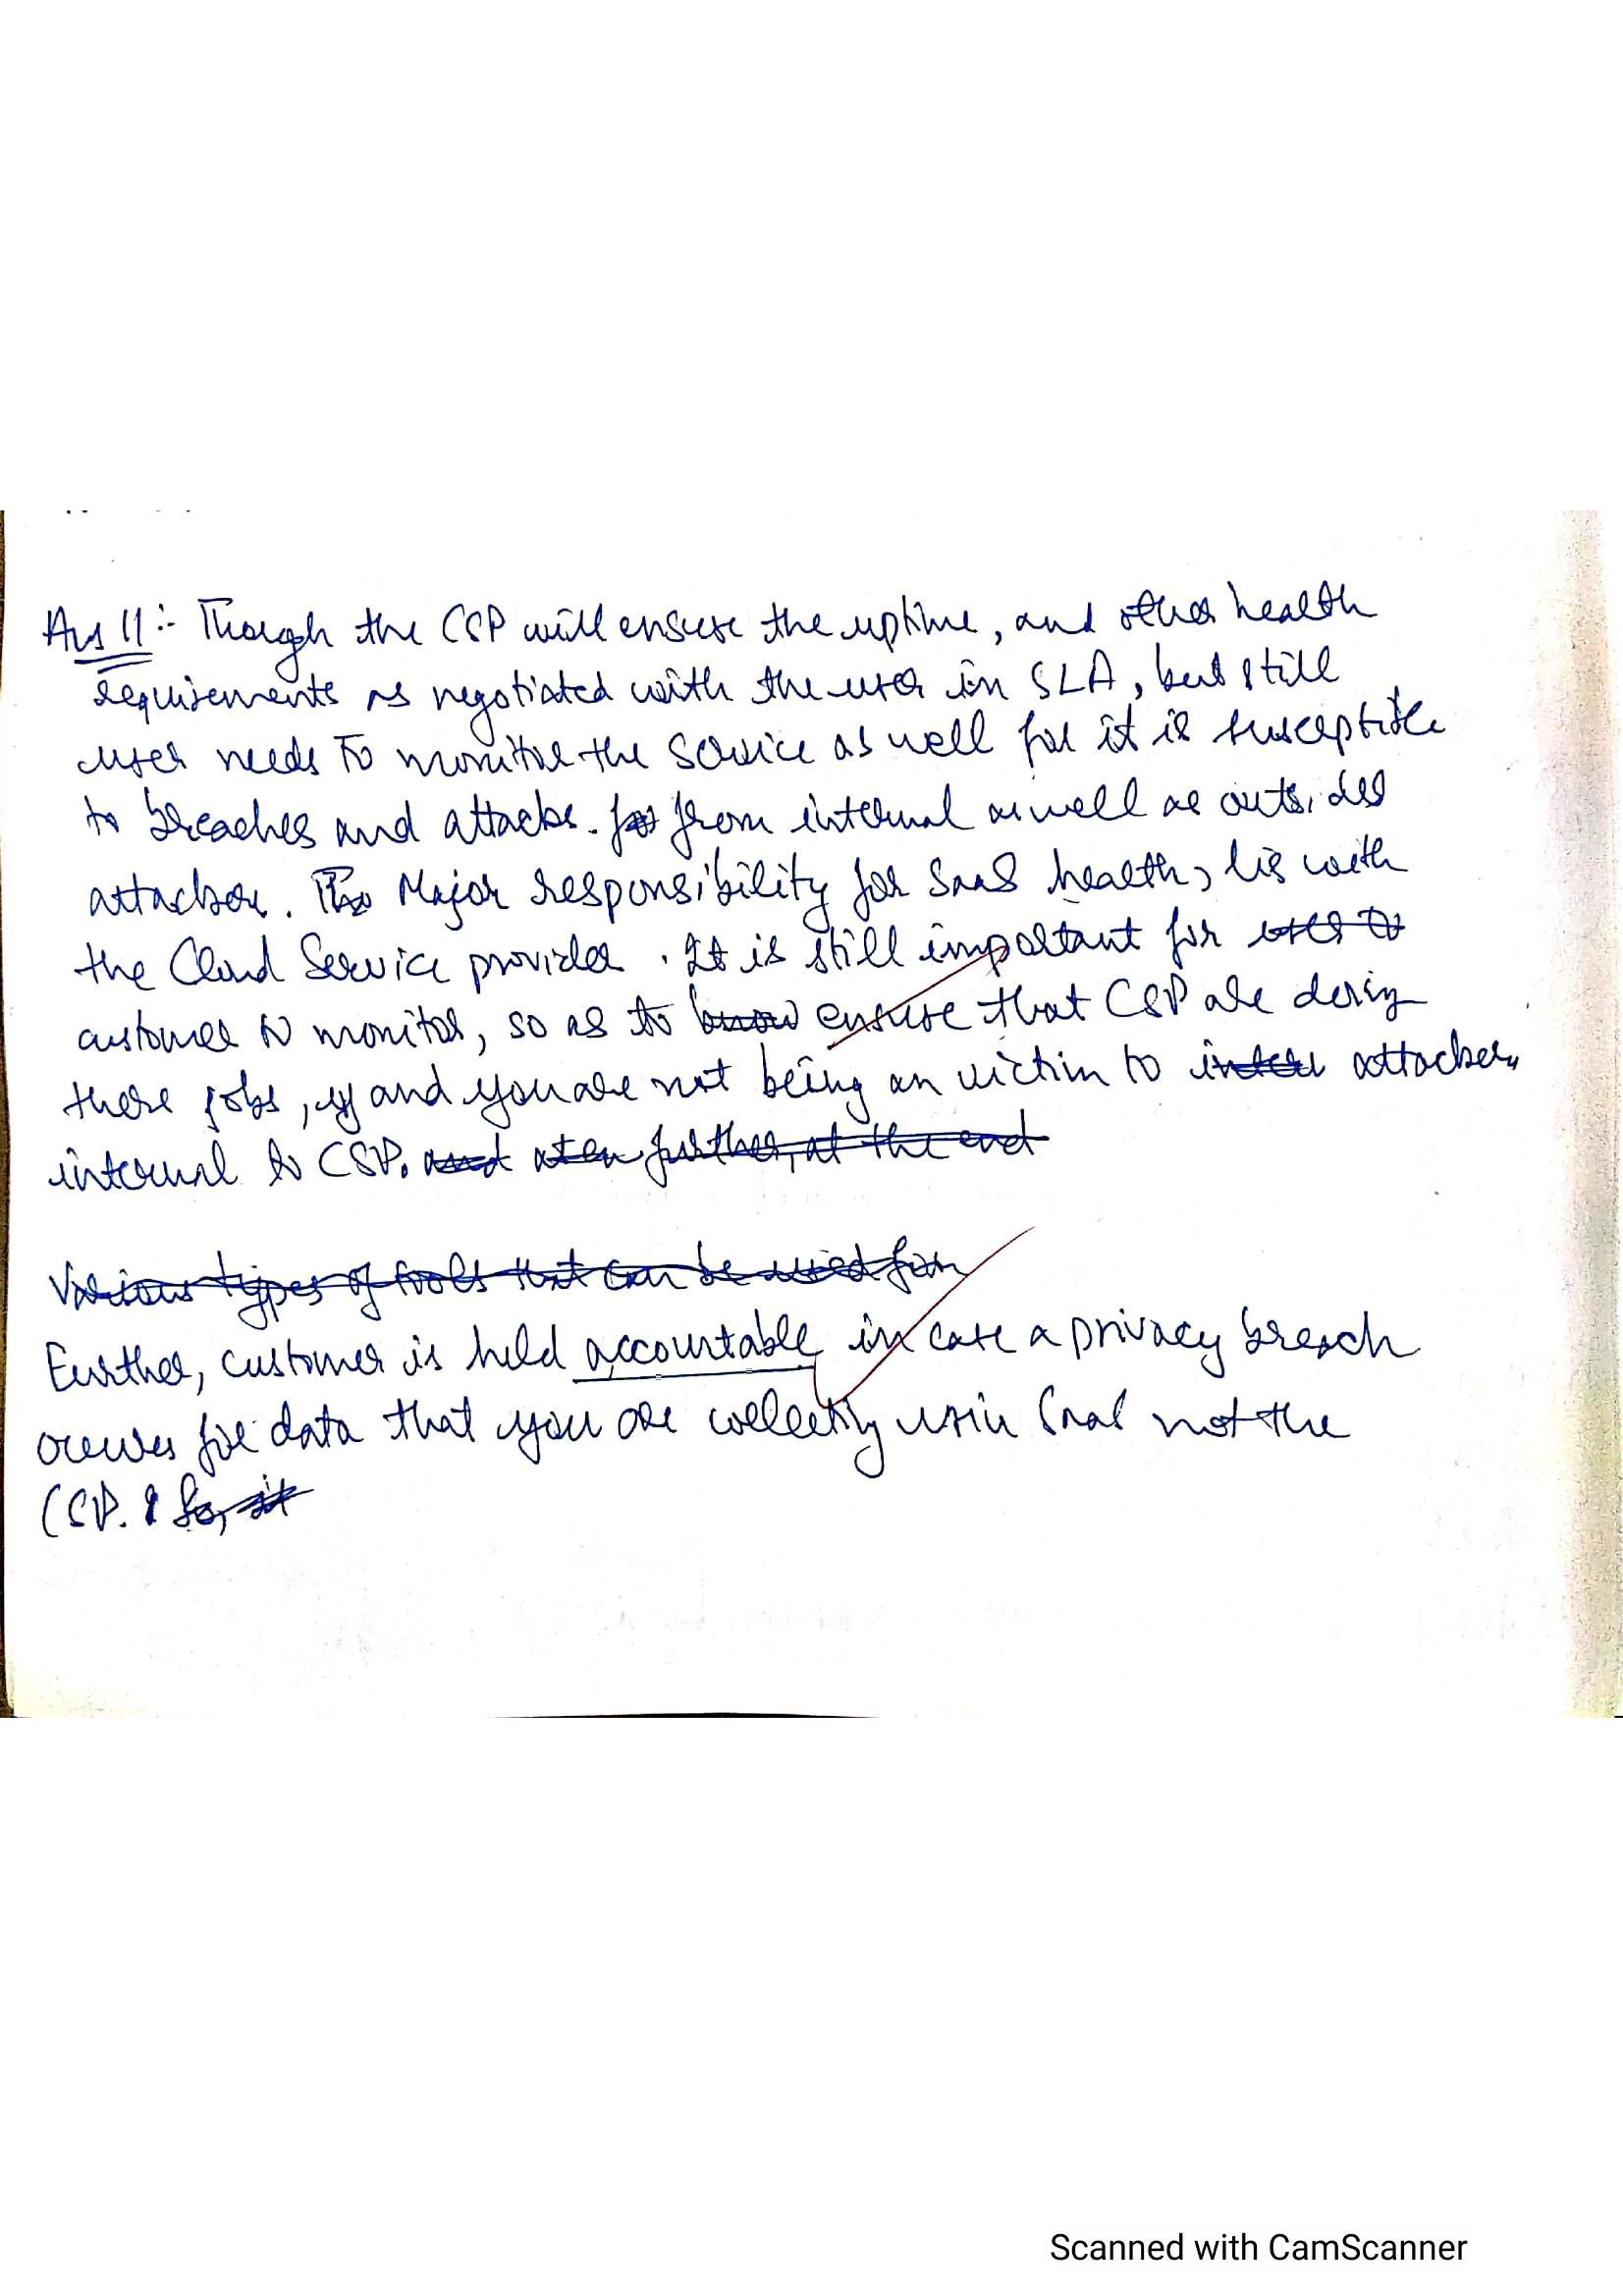 Ans 11:- Though the CSP will ensure the uptime, and other health
requirements as negotiated with the user in SLA, but still
user needs to monitor the service as well for it is susceptible
to breaches and attacks. from internal as well as outsides
attackers. Major responsibility for SaaS health, lis with
the Cloud Service provider. It is still important for user to
customer to monitor, so as to know ensure that CSP are doing
there jobs, and you are not being an victim to attackers
internal to CSP. and further, at the end
Various types of tools that can be used for
Further, customer is held accountable in case a privacy breach
occurs for data that you are collecting usin SaaS not the
CSP. So, it
Scanned with CamScanner